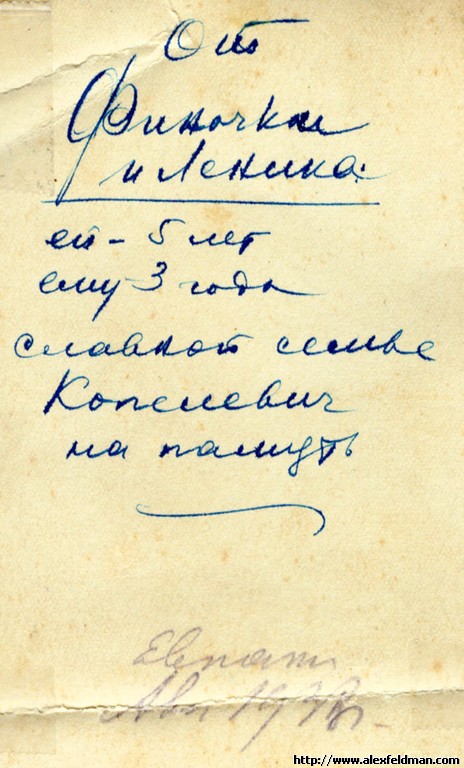 От
Финочки
и Леника:
ей - 5 лет
ему 3 года
славной семье
Копелевич
на память
Евпат
http://www.alexfeldman.com